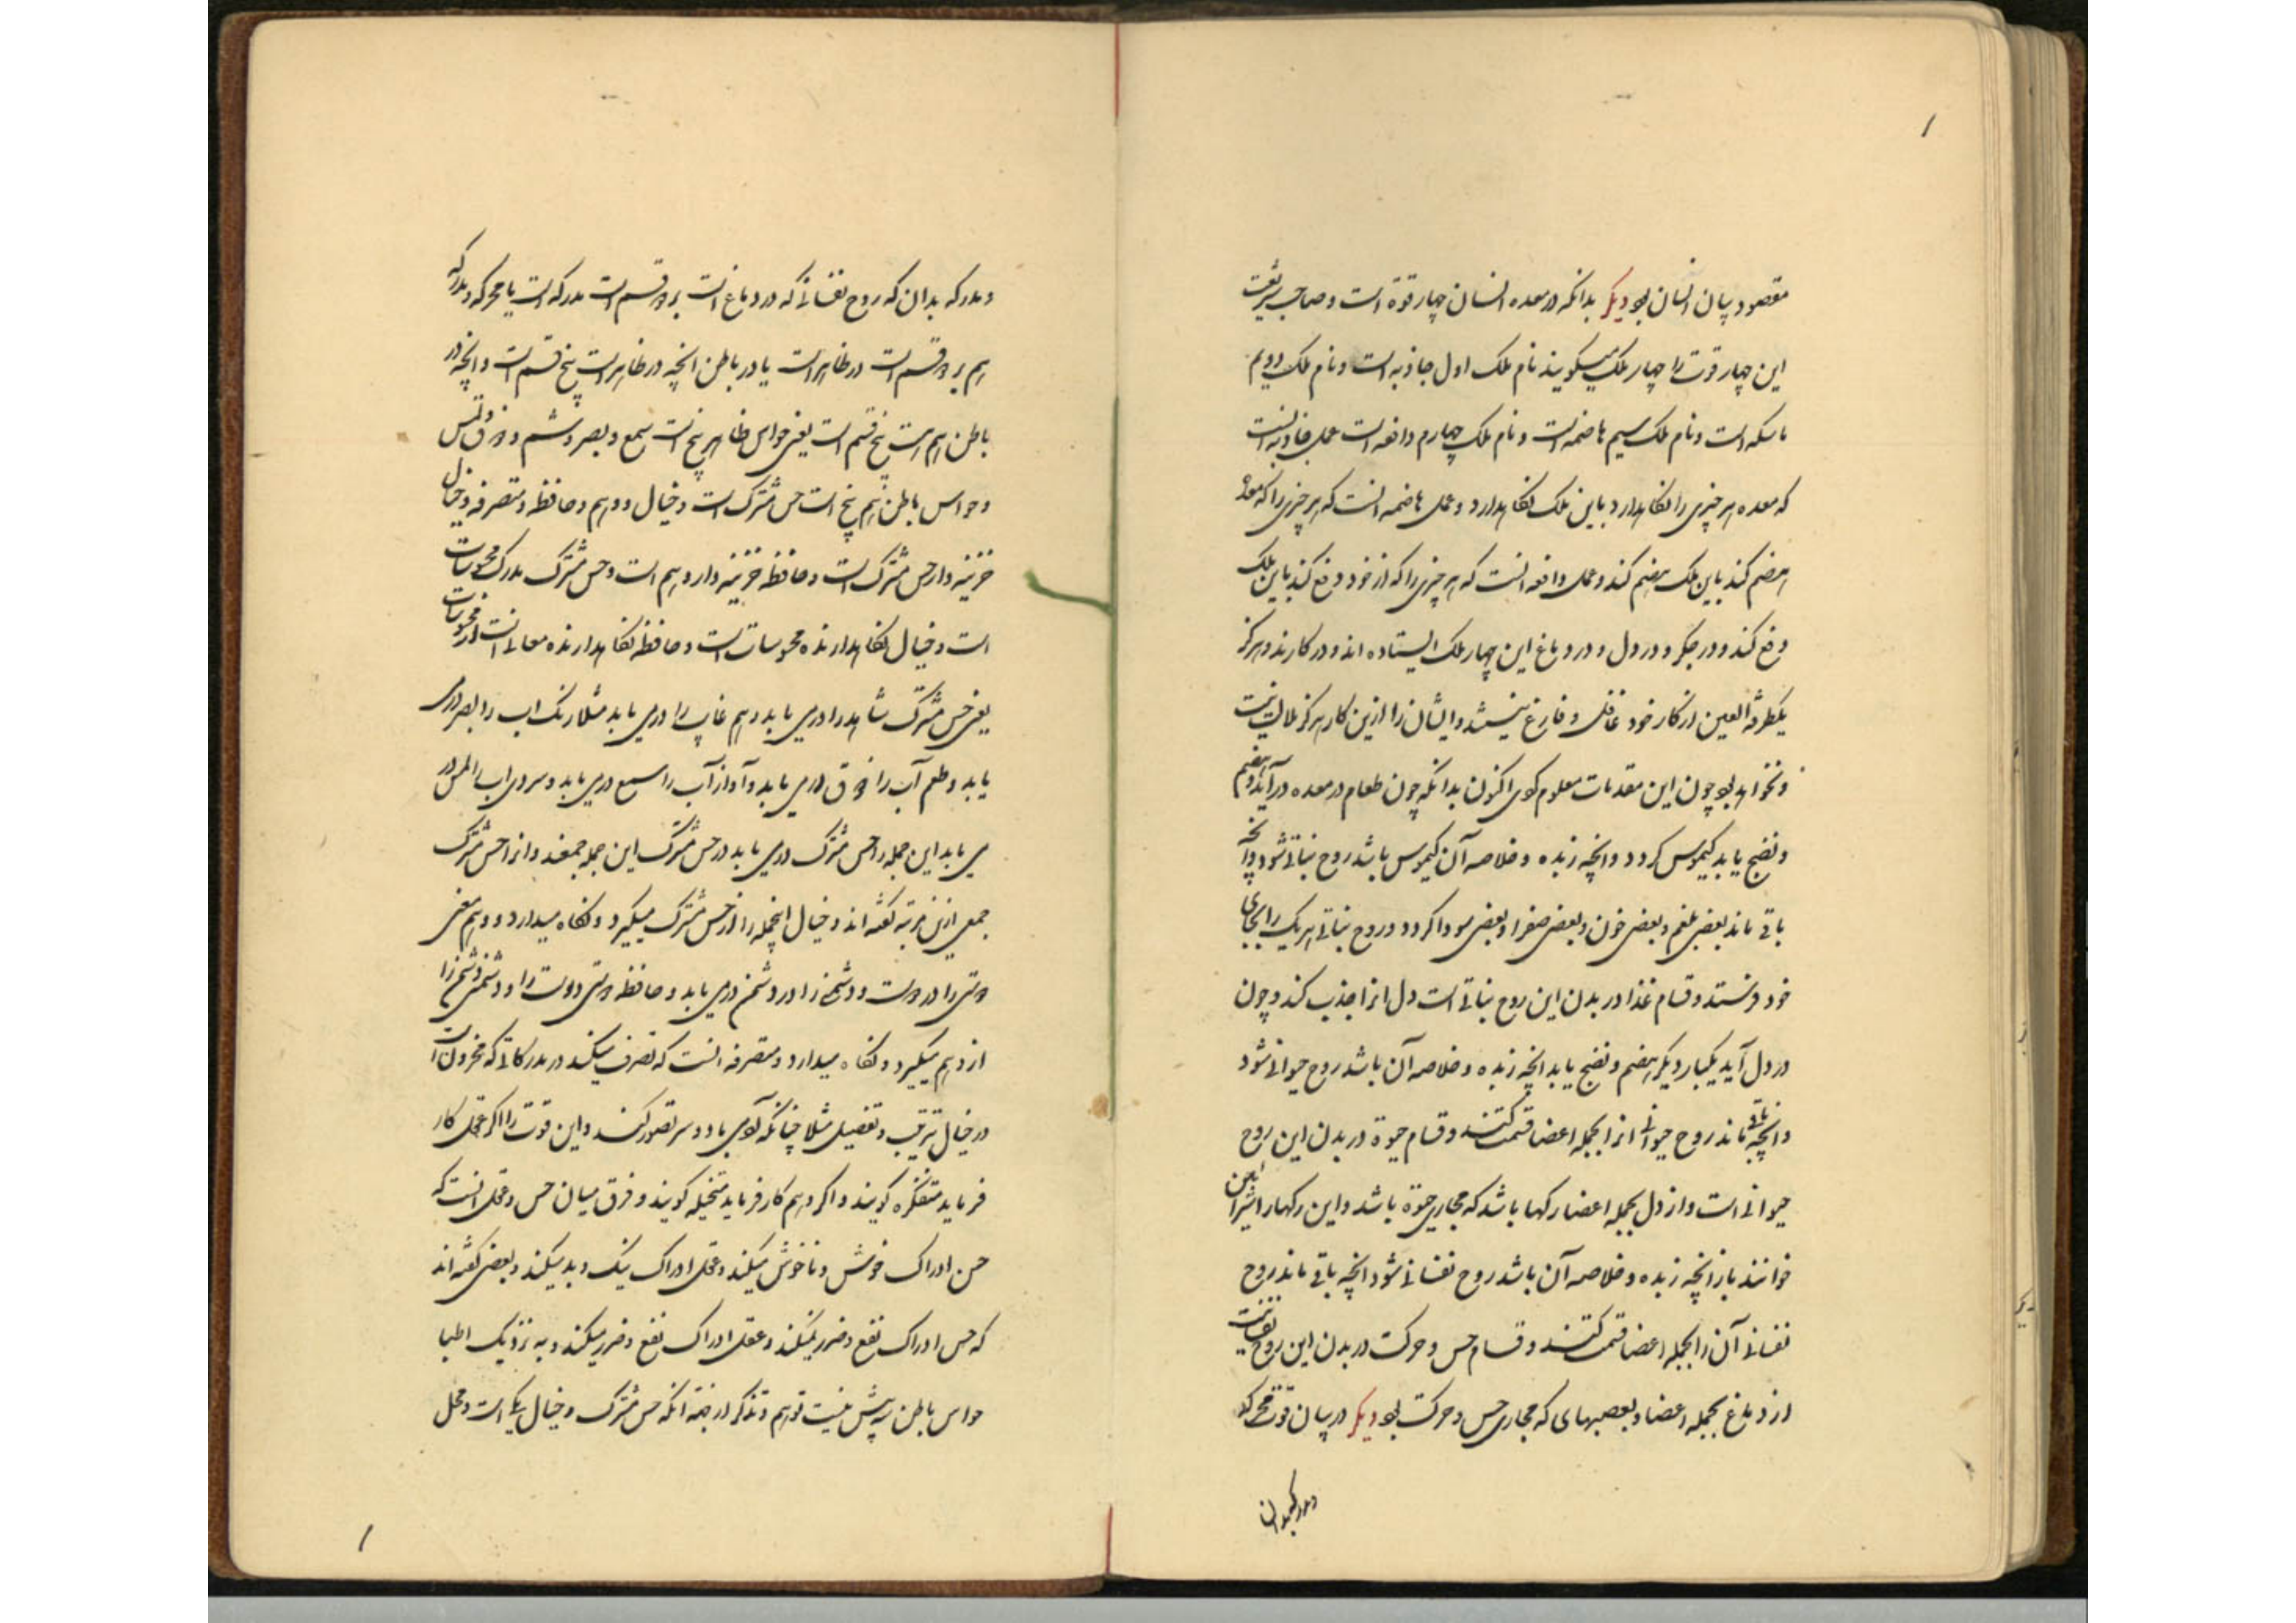 ۱
مقصود بیان انسان بود دیگر بدانکه در معده انسان چهار قوة است و صاحب شریعت
این چهار قوت را چهار ملک میگویند نام ملک اول جاذبه است و نام ملک دویم
ماسکه است و نام ملک سیم هاضمه است و نام ملک چهارم دافعه است عمل جاذبه انست
که معده هر چیزی را نکاهدارد باین ملک نکاهدارد و عمل هاضمه انست که هر چیزی را که معده
هضم کند باین ملک هضم کند و عمل دافعه انست که هر چیزی را که از خود دفع کند باین ملک
دفع کند و در جکر و در دل و در دماغ این چهار ملک ایستاده اند و در کارند و هرگز
یکطرفة العین از کار خود غافل و فارغ نیستند و ایشان را ازین کار هرگز ملالت نیست
و نخواهد بود چون این مقدمات معلوم کردی اکنون بدانکه چون طعام در معده درآید و هضم
و نضج یابد کیموس کردد و انچه زبده و خلاصه آن کیموس باشد روح نباتی شود و آنچه
باقی ماند بعضی بلغم و بعضی خون و بعضی صفرا و بعضی سودا کردد و روح نباتی هر یک را بجای
خود فرستد و قسام غذا در بدن این روح نباتی است دل انرا جذب کند و چون
در دل آید یکبار دیکر هضم و نضج یابد انچه زبده و خلاصه آن باشد روح حیوانی شود
و انچه باقی ماند روح حیوانی انرا بجمله اعضا قسمت کند و قسام حیوة در بدن این روح
حیوانی است و از دل بجمله اعضا رکها باشد که مجاری حیوة باشد و این رکها را شرائین
خوانند باز انچه زبده و خلاصه آن باشد روح نفسانی شود انچه باقی ماند روح
نفسانی آن را بجمله اعضا قسمت کند و قسام حس و حرکت در بدن این روح نفسانیست
از دماغ بجمله اعضا و بعصبهای که مجاری حس و حرکت بود دیگر در بیان قوت محرکه
و مدرکه بدان
و مدرکه بدان که روح نفسانی که در دماغ است بر دو قسم است مدرکه است یا محرکه و مدرکه
هم بر دو قسم است در ظاهر است یا در باطن انچه در ظاهر است پنج قسم است و انچه در
باطن هم است پنج قسم است یعنی حواس ظاهر پنج است سمع و بصر و شم و ذوق و لمس
و حواس باطن هم پنج است حس مشترک است و خیال و وهم و حافظه و متصرفه و خیال
خزینه دار حس مشترک است و حافظه خزینه دار وهم است و حس مشترک مدرک محسوسات
است و خیال نکاهدارنده محسوسات است و حافظه نکاهدارنده معانی است از محسوسات
یعنی حس مشترک شاهد را درمی یابد و هم غایب را درمی یابد مثلا رنک اب را بصر درمی
یابد و طعم آب را ذوق درمی یابد و آواز آب را سمع درمی یابد و سردی اب را لمس در
می یابد این جمله را حس مشترک درمی یابد در حس مشترک این جمله جمعند و انرا حس مشترک
جمعی ازین مرتبه گفته اند و خیال اینجمله را از حس مشترک میکیرد و نکاه میدارد و وهم معنی
دوستی را در دوست و دشمنی را در دشمن درمی یابد و حافظه دوستی دوست را و دشمنی دشمن را
از وهم میکیرد و نکاه میدارد و متصرفه انست که تصرف میکند در مدرکاتی که مخزون است
در خیال بترتیب و تفصیل مثلا چنانکه آدمی با دو سر تصور کند و این قوت را اگر عقل کار
فرماید متفکره کویند و اکر وهم کار فرماید متخیله کویند و فرق میان حس و عقل انست که
حس ادراک خوش و ناخوش میکند و عقل ادراک نیک و بد میکند و بعضی گفته اند
که حس ادراک نفع و ضرر نمیکند و عقل ادراک نفع و ضرر میکند و به نزدیک اطبا
حواس باطن سه بیش نیست توهم و تذکر از بهر آنکه حس مشترک و خیال یکی است و محل
۱